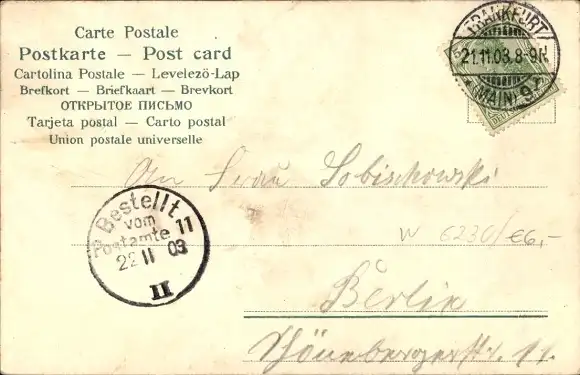 Carte Postale
Postkarte — Post card
Cartolina Postale — Levelezö-Lap
Brefkort — Briefkaart — Brevkort
ОТКРЫТОЕ ПИСЬМО
Tarjeta postal — Carto postal
Union postale universelle
FRANKFURT
21.11.03. 8-9N.
(MAIN) 9
An Frau Sobischowski
W 6230/€6,-
Bestellt
vom
Postamte 11
22 11 03
II
Berlin
Schönebergerstr. 11.